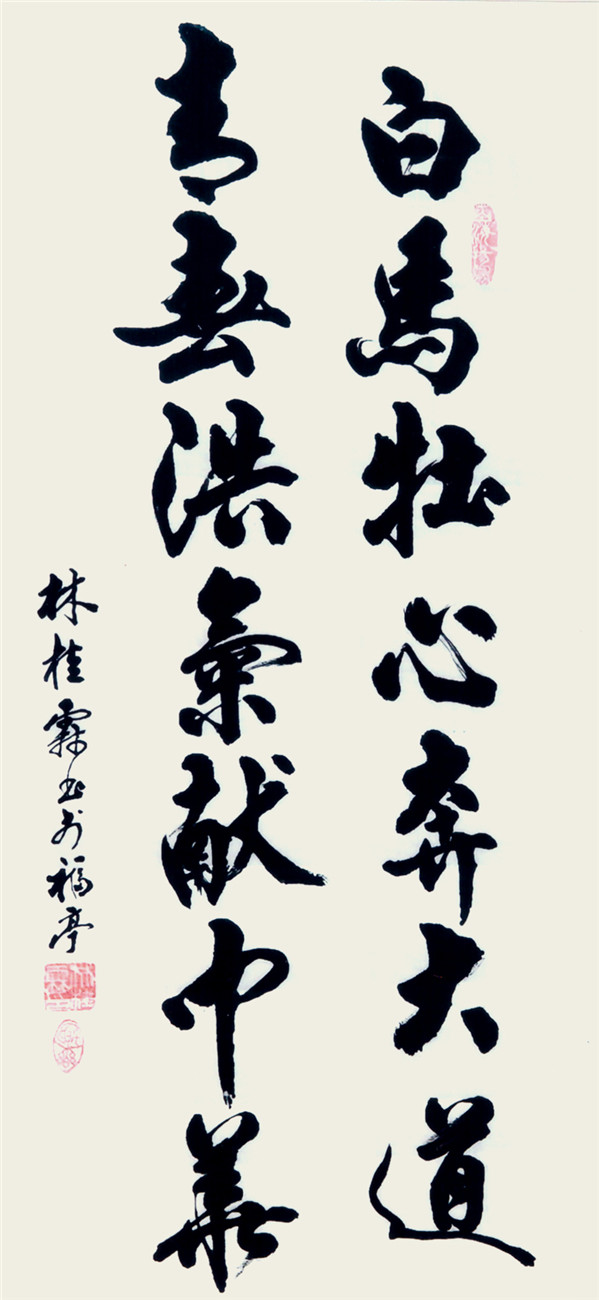 白馬壮心奔大道
青春洪氣献中華
林桂霖书於福亭